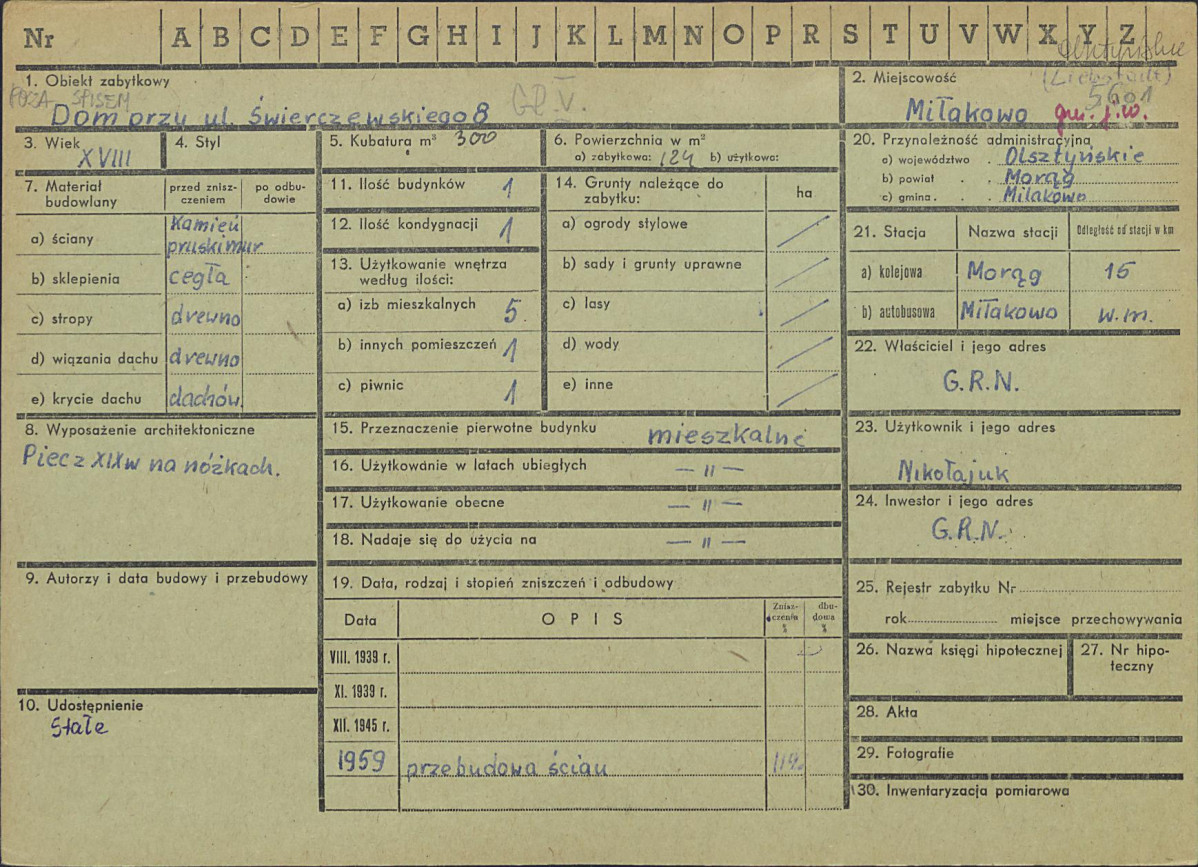 Nr A B C D E F G H I J K L M N O P R S T U V W X Y Z
1. Obiekt zabytkowy
POZA SPISEM
Dom przy ul. Świerczewskiego 8
GR V.
2. Miejscowość
(Liebstadt)
5601
Miłakowo gm. j.w.
3. Wiek
XVIII
4. Styl
5. Kubatura m³ 300
6. Powierzchnia w m²
a) zabytkowa: 124 b) użytkowa:
7. Materiał budowlany
przed zniszczeniem
po odbudowie
a) ściany
Kamień
pruski mur
b) sklepienia cegła
c) stropy drewno
d) wiązania dachu drewno
e) krycie dachu dachów.
8. Wyposażenie architektoniczne
Piec z XIX w na nóżkach.
9. Autorzy i data budowy i przebudowy
10. Udostępnienie
Stałe
11. Ilość budynków 1
12. Ilość kondygnacji 1
13. Użytkowanie wnętrza
według ilości:
a) izb mieszkalnych 5
b) innych pomieszczeń 1
c) piwnic 1
14. Grunty należące do
zabytku:
ha
a) ogrody stylowe
b) sady i grunty uprawne
c) lasy
d) wody
e) inne
15. Przeznaczenie pierwotne budynku mieszkalne
16. Użytkowanie w latach ubiegłych — 〃 —
17. Użytkowanie obecne — 〃 —
18. Nadaje się do użycia na — 〃 —
19. Data, rodzaj i stopień zniszczeń i odbudowy
Data OPIS Zniszczenia % dbudowa %
VIII. 1939 r.
XI. 1939 r.
XII. 1945 r.
1959 przebudowa ścian
20. Przynależność administracyjna
a) województwo Olsztyńskie
b) powiat Morąg
c) gmina Miłakowo
21. Stacja Nazwa stacji Odległość od stacji w km
a) kolejowa Morąg 15
b) autobusowa Miłakowo w.m.
22. Właściciel i jego adres
G.R.N.
23. Użytkownik i jego adres
Nikołajuk
24. Inwestor i jego adres
G.R.N.
25. Rejestr zabytku Nr
rok miejsce przechowywania
26. Nazwa księgi hipotecznej
27. Nr hipo-
teczny
28. Akta
29. Fotografie
30. Inwentaryzacja pomiarowa